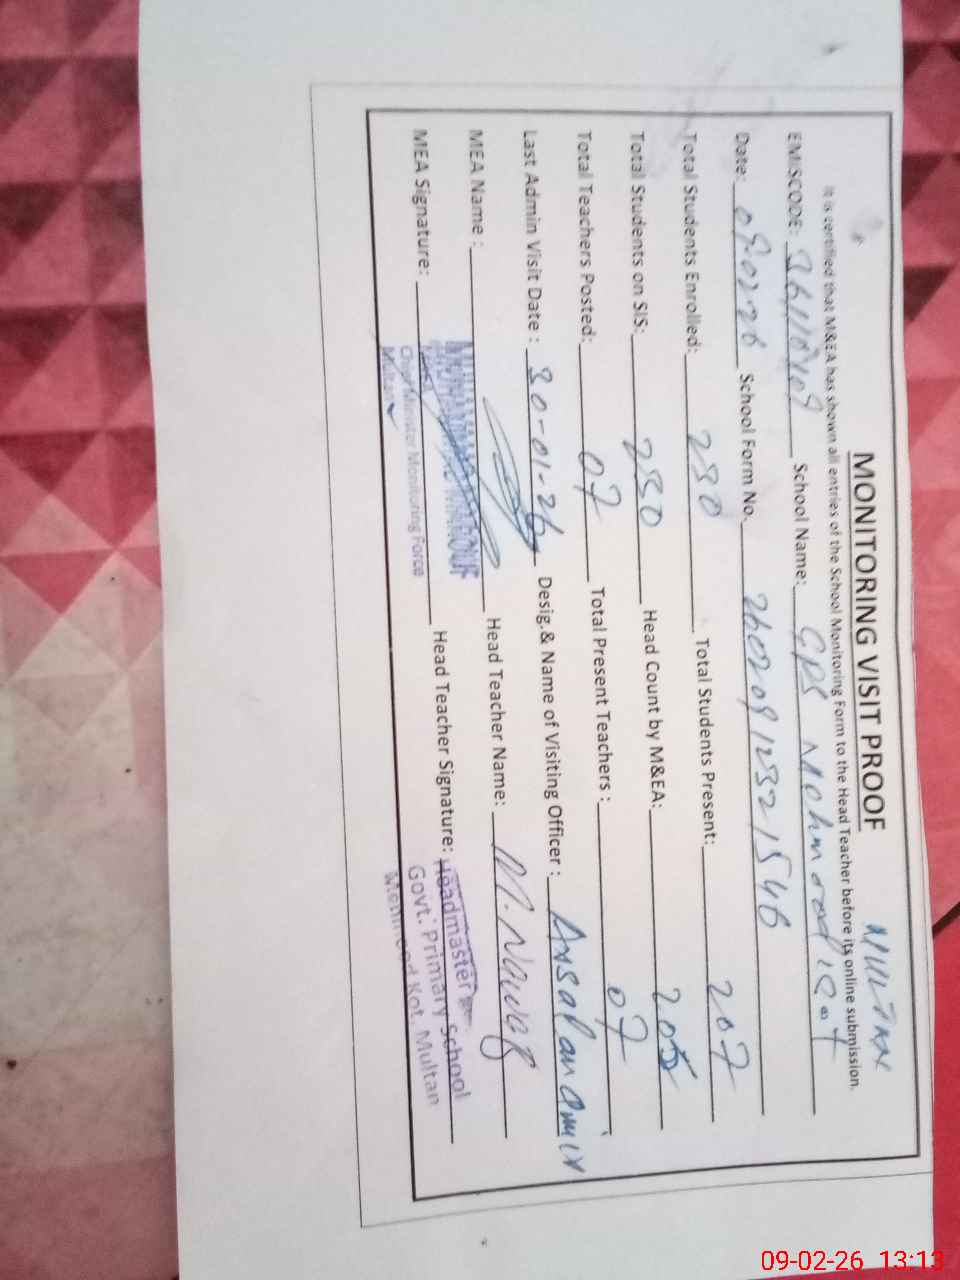 MULTAN
MONITORING VISIT PROOF
It is certified that M&EA has shown all entries of the School Monitoring Form to the Head Teacher before its online submission.
EMISCODE: School Name: GPS Mehmood Kot
Date: 09.02.26 School Form No. 26020912321546
Total Students Enrolled: 230 Total Students Present: 207
Total Students on SIS: 230 Head Count by M&EA: 205
Total Teachers Posted: 07 Total Present Teachers : 07
Last Admin Visit Date : 30-01-26 Desig.& Name of Visiting Officer : Arsalan Amir
MEA Name : Head Teacher Name: M. Nawaz
MEA Signature: Head Teacher Signature:
Chief Minister Monitoring Force
Multan
Headmaster
Govt: Primary School
Mehmood Kot. Multan
09-02-26 13:13